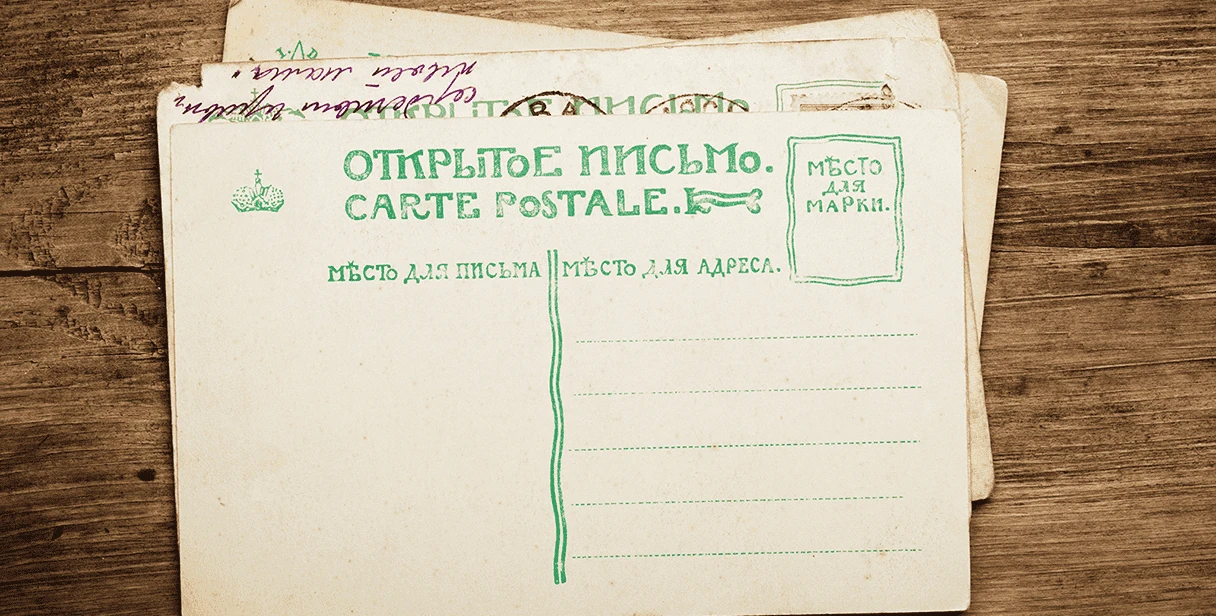 ОТКРЫТОЕ ПИСЬМО.
CARTE POSTALE.
МѢСТО
ДЛЯ
МАРКИ.
МѢСТО ДЛЯ ПИСЬМА
МѢСТО ДЛЯ АДРЕСА.